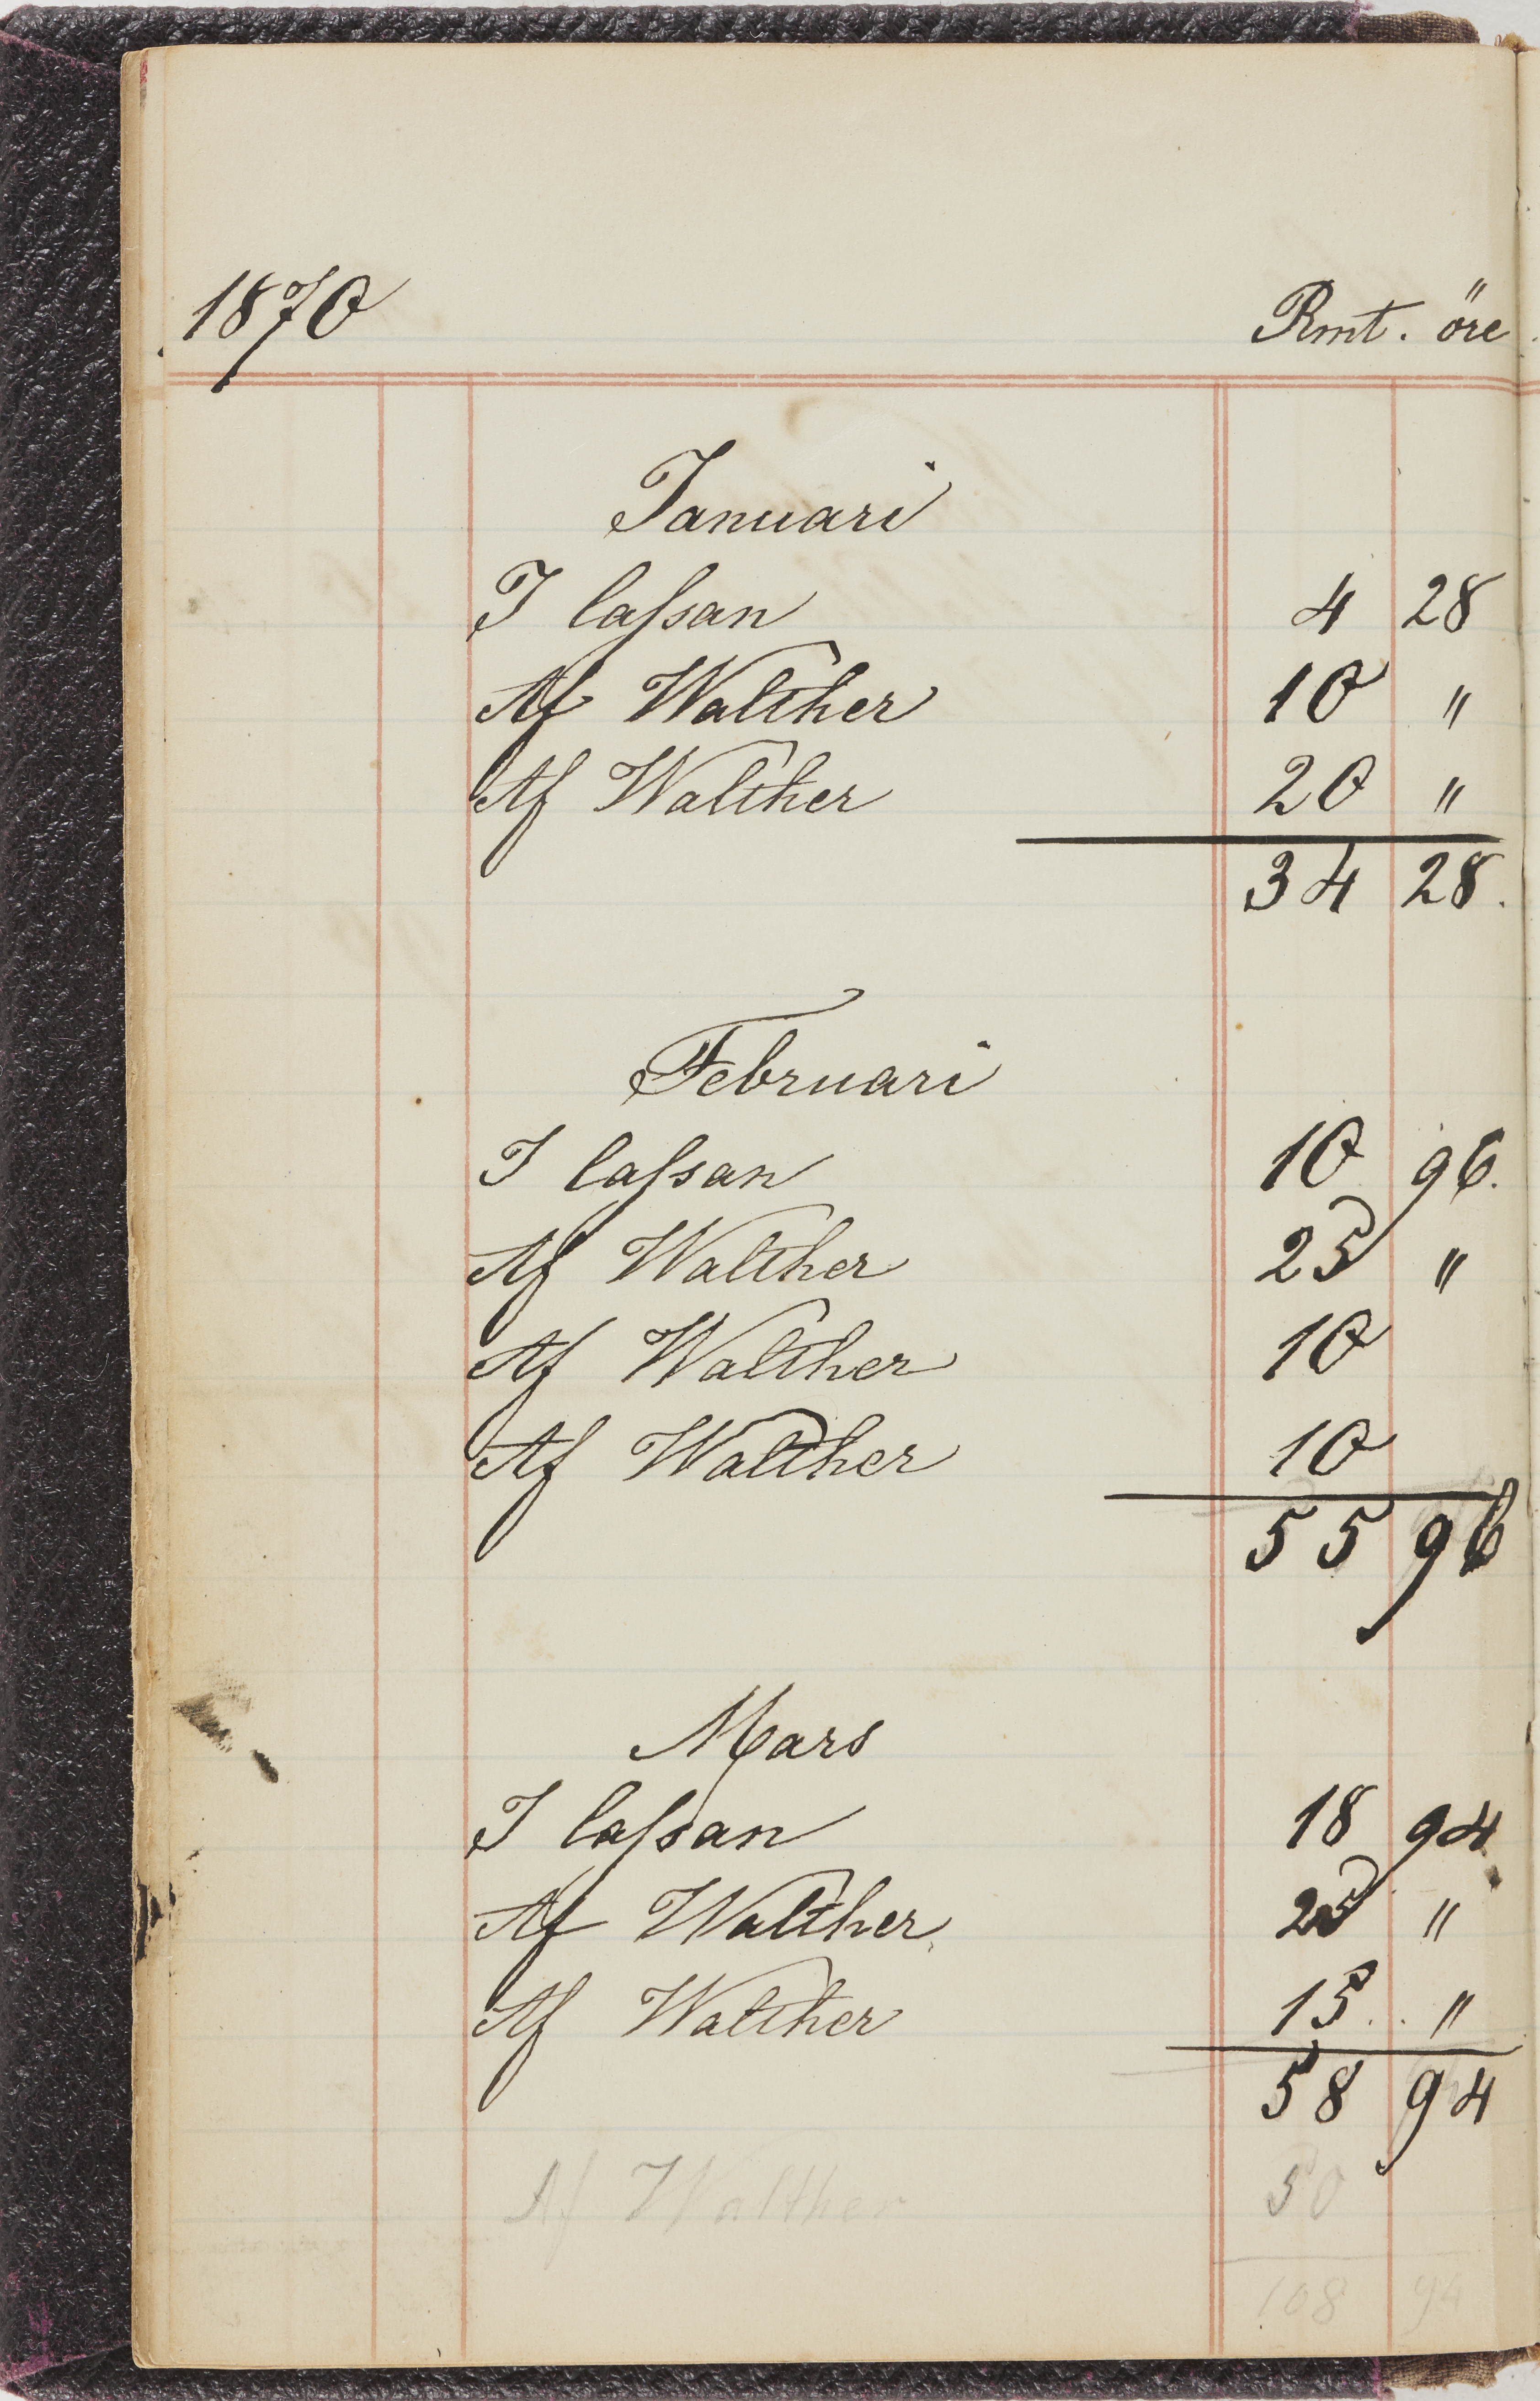 1870 Rmt. öre
Januari
I cassan 4 28
Af Walther 10 "
Af Walther 20 "
34 28.
Februari
I cassan 10 96.
Af Walther 25 "
Af Walther 10
Af Walther 10
55 96
Mars
I cassan 18 94
Af Walther 25 "
Af Walther 15 "
58 94
Af Walther 50
108 94